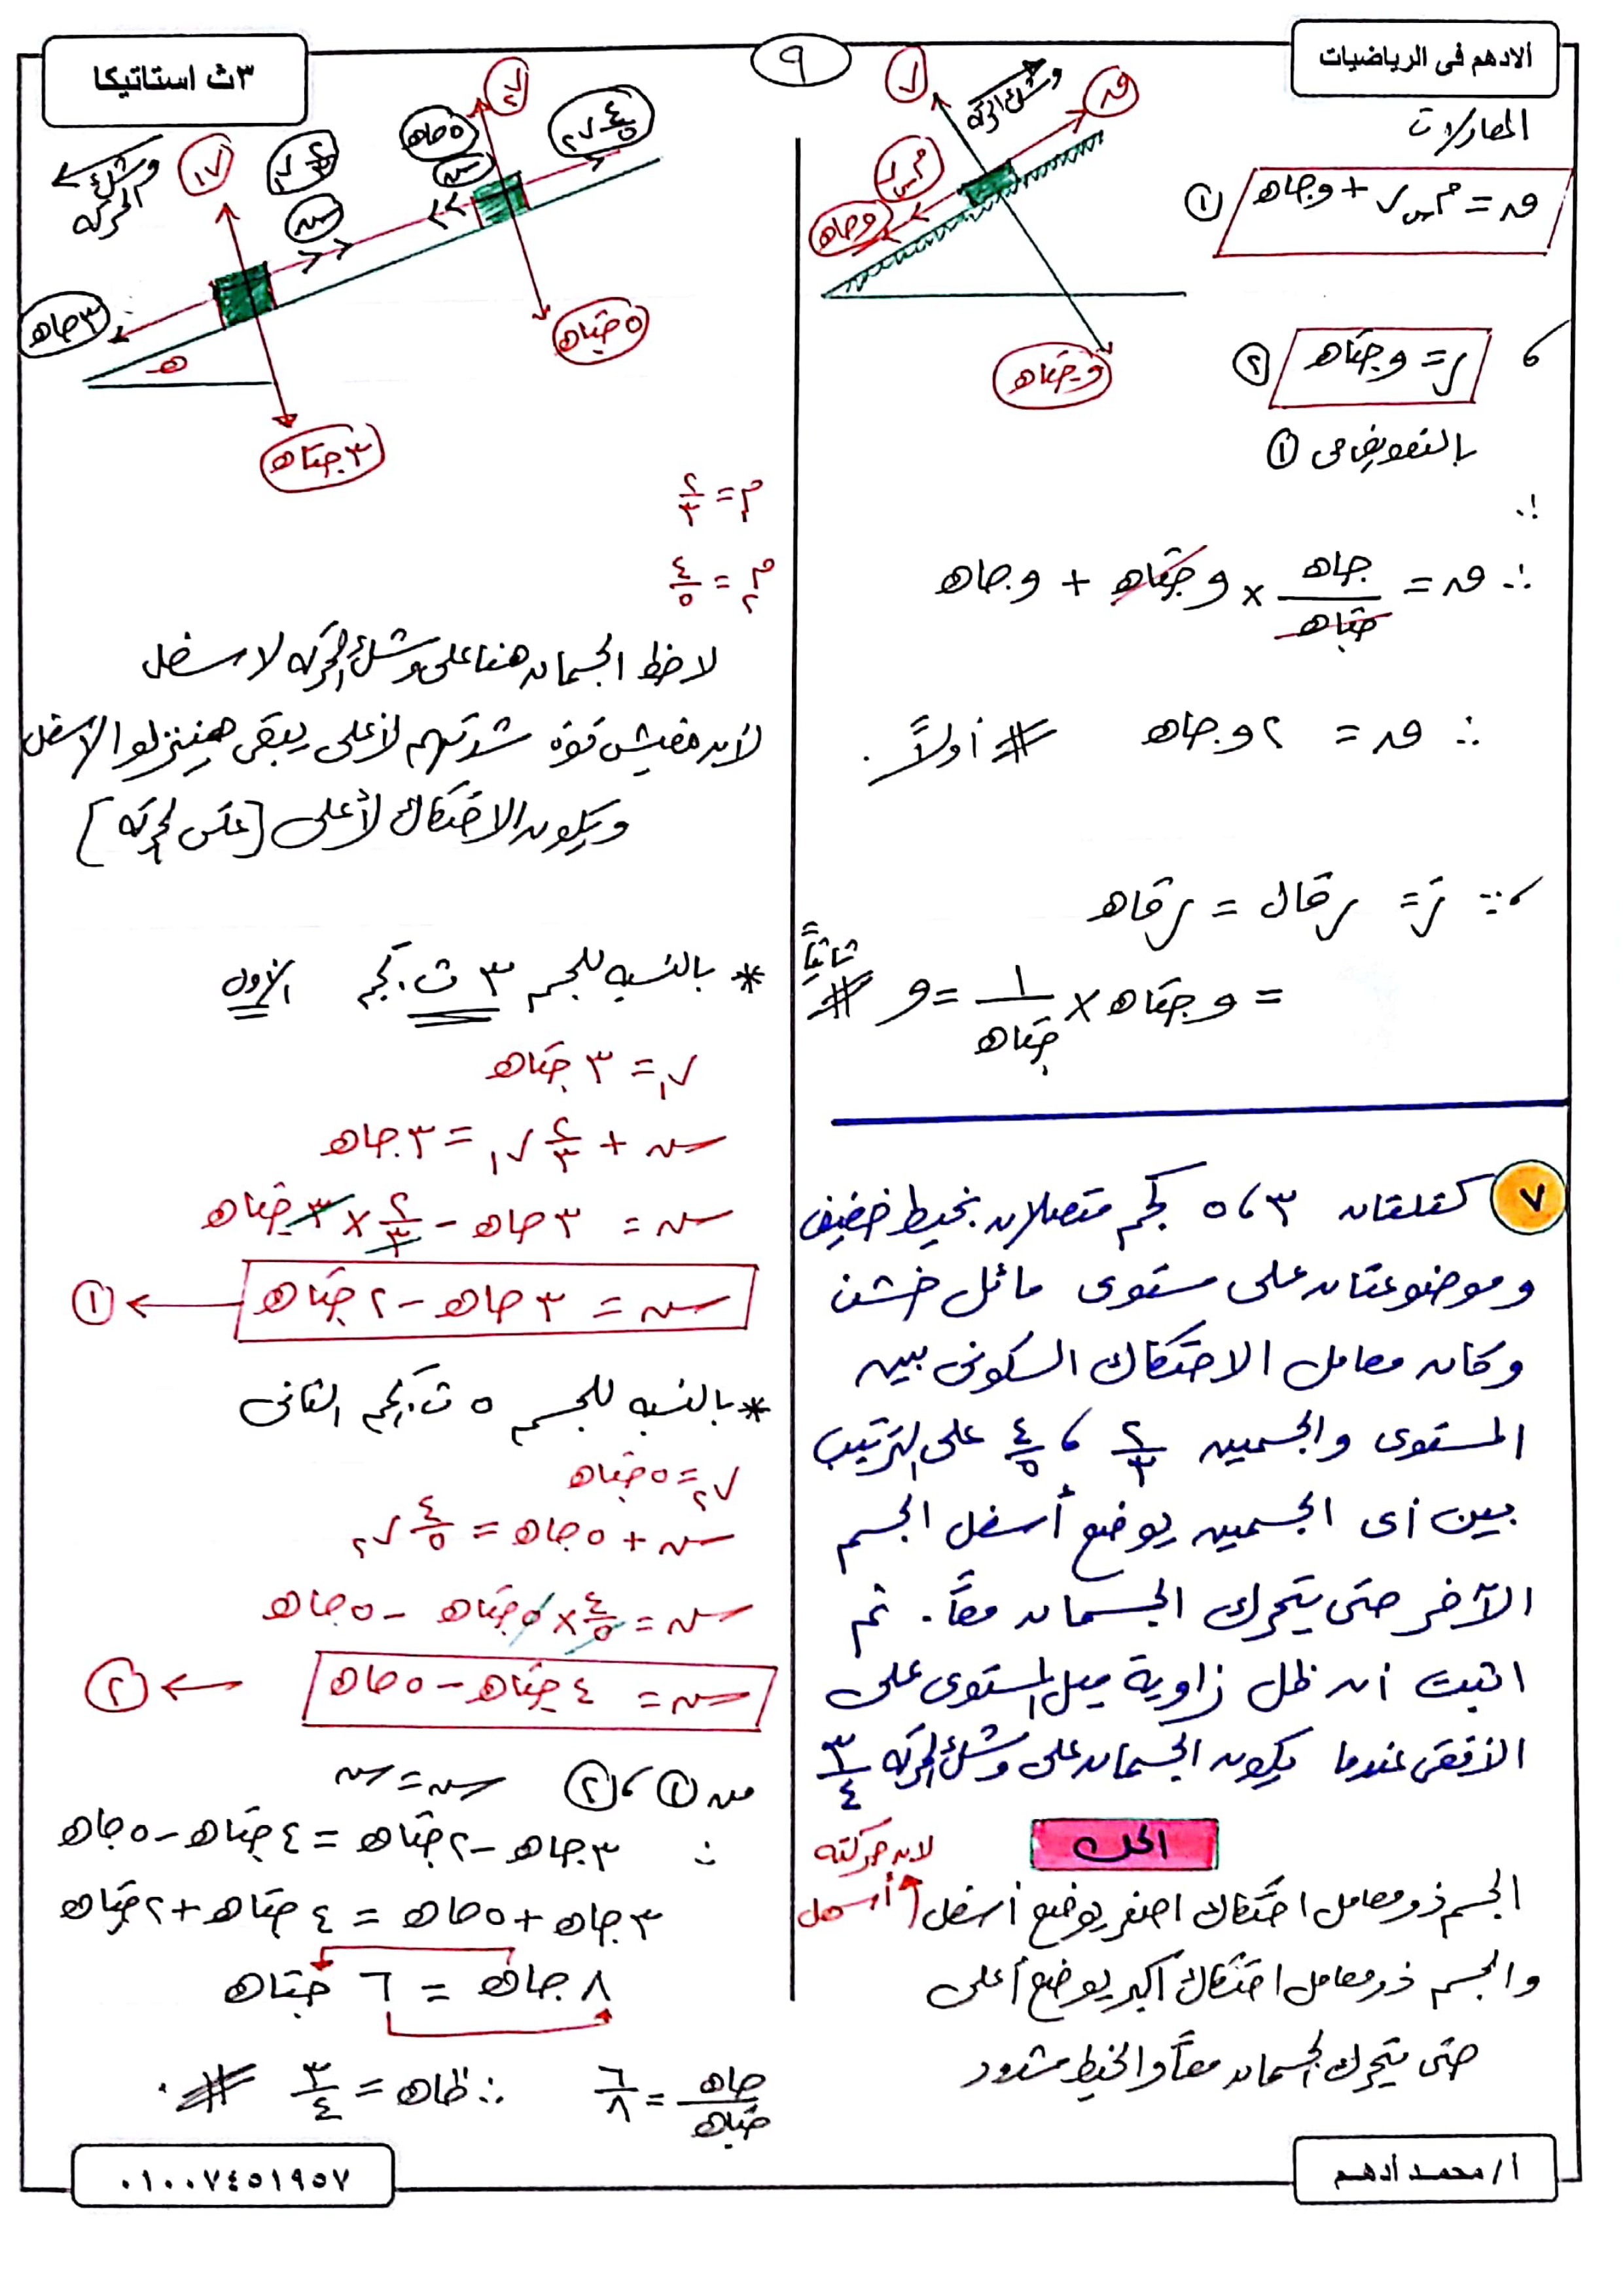 الادهم فى الرياضيات
٩
٣ث استاتيكا
المعادلات
ق = م س ر + و جاه ①
و
م س ر
و جاه
ر
ق
وشك الحركة
و جتاه
، ر = و جتاه ②
بالتعويض فى ①
∴ ق = جاه / جتاه × و جتاه + و جاه
∴ ق = ٢ و جاه # أولاً.
، ∵ رَ = ر قال = ر قاه
= و جتاه × ١ / جتاه = و # ثانياً
٧ كتلتان ٣ ، ٥ كجم متصلان بخيط خفيف
وموضوعتان على مستوى مائل خشن
وكان معامل الاحتكاك السكونى بين
المستوى والجسمين ٢/٣ ، ٤/٥ على الترتيب
بين أى الجسمين يوضع أسفل الجسم
الآخر حتى يتحرك الجسمان معاً. ثم
اثبت ان ظل زاوية ميل المستوى على
الأفقى عندما يكون الجسمان على وشك الحركه ٣/٤
الحل
الجسم ذو معامل احتكاك اصغر يوضع أسفل
لان حركته أسهل
والجسم ذو معامل احتكاك أكبر يوضع أعلى
حتى يتحرك الجسمان معاً والخيط مشدود
وشك الحركه
ر١
٢/٣ ر١
سه
٥ جاه
سه
ر٢
٤/٥ ر٢
٣ جاه
ه
٣ جتاه
٥ جتاه
م١ = ٢/٣
م٢ = ٤/٥
لاحظ الجسمان هنا على وشك الحركه لاسفل
لان مفيش قوه شدتهم لأعلى يبقى هينزلوا لاسفل
ويكون الاحتكاك لأعلى [عكس الحركه]
* بالنسبه للجسم ٣ ث.كجم الاول
ر١ = ٣ جتاه
سه + ٢/٣ ر١ = ٣ جاه
سه = ٣ جاه - ٢/٣ × ٣ جتاه
سه = ٣ جاه - ٢ جتاه ← ①
* بالنسبه للجسم ٥ ث.كجم الثانى
ر٢ = ٥ جتاه
سه + ٥ جاه = ٤/٥ ر٢
سه = ٤/٥ × ٥ جتاه - ٥ جاه
سه = ٤ جتاه - ٥ جاه ← ②
من ① ، ② سه = سه
∴ ٣ جاه - ٢ جتاه = ٤ جتاه - ٥ جاه
٣ جاه + ٥ جاه = ٤ جتاه + ٢ جتاه
٨ جاه = ٦ جتاه
جاه / جتاه = ٦/٨ ∴ ظاه = ٣/٤ #.
أ/ محمد أدهم
٠١٠٠٧٤٥١٩٥٧